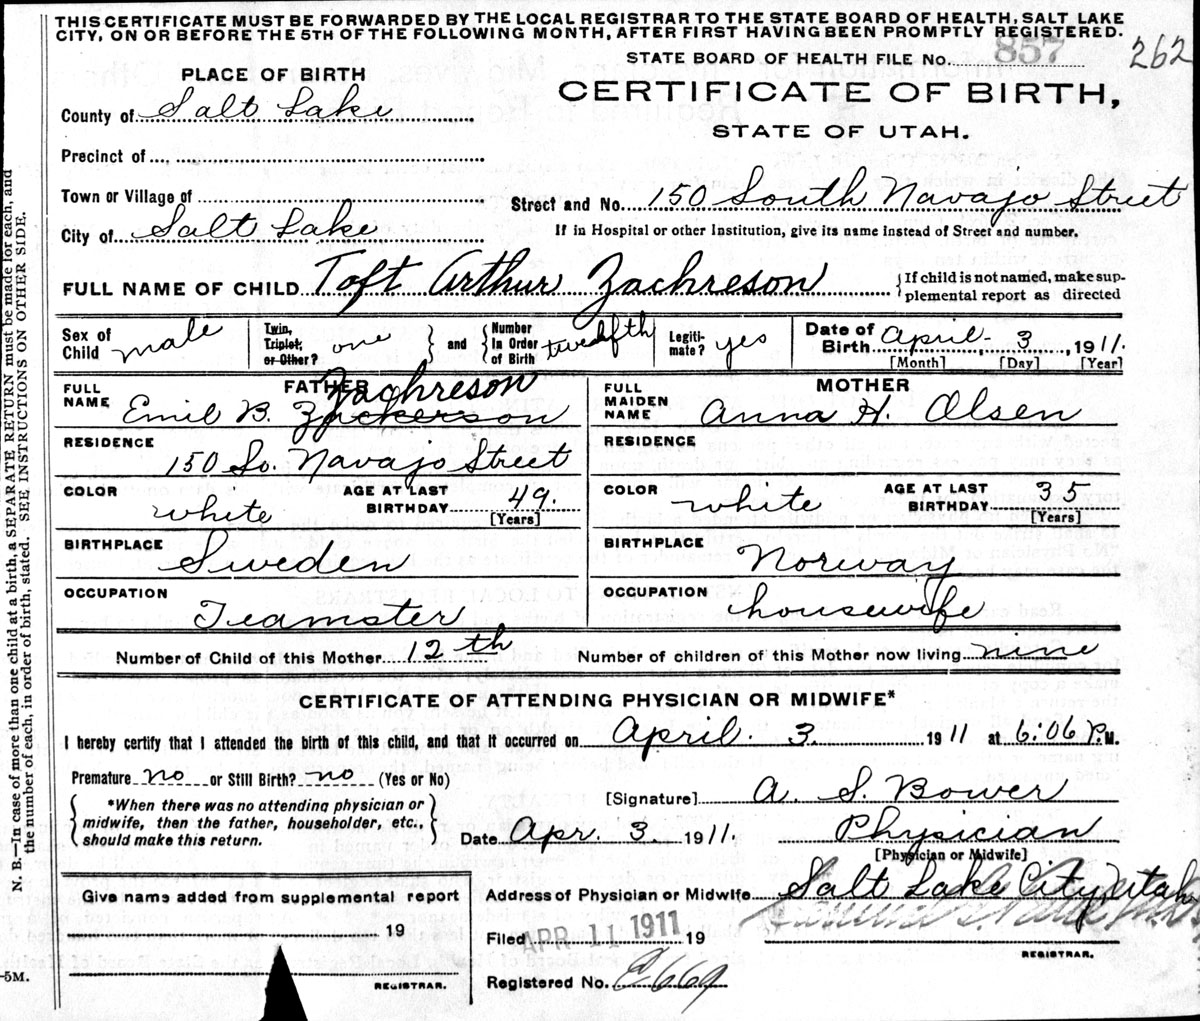 THIS CERTIFICATE MUST BE FORWARDED BY THE LOCAL REGISTRAR TO THE STATE BOARD OF HEALTH, SALT LAKE
CITY, ON OR BEFORE THE 5TH OF THE FOLLOWING MONTH, AFTER FIRST HAVING BEEN PROMPTLY REGISTERED.
STATE BOARD OF HEALTH FILE No. 857 262
PLACE OF BIRTH
CERTIFICATE OF BIRTH,
County of Salt Lake
STATE OF UTAH.
Precinct of
Town or Village of
Street and No. 150 South Navajo Street
City of Salt Lake
If in Hospital or other Institution, give its name instead of Street and number.
FULL NAME OF CHILD Toft Arthur Zachreson
If child is not named, make sup-
plemental report as directed
Sex of Child male
Twin, Triplet, or Other? one and Number In Order of Birth twelfth
Legiti-mate? yes
Date of Birth April 3, 1911.
[Month] [Day] [Year]
FATHER
FULL NAME Emil B. Zackerson Zachreson
RESIDENCE
150 So. Navajo Street
COLOR white AGE AT LAST BIRTHDAY 49.
[Years]
BIRTHPLACE
Sweden
OCCUPATION
Teamster
MOTHER
FULL MAIDEN NAME Anna H. Olsen
RESIDENCE
COLOR white AGE AT LAST BIRTHDAY 35
[Years]
BIRTHPLACE
Norway
OCCUPATION
housewife
Number of Child of this Mother 12th Number of children of this Mother now living nine
CERTIFICATE OF ATTENDING PHYSICIAN OR MIDWIFE*
I hereby certify that I attended the birth of this child, and that it occurred on April. 3. 1911 at 6:06 P.M.
Premature no or Still Birth? no (Yes or No)
*When there was no attending physician or
midwife, then the father, householder, etc.,
should make this return.
[Signature] A. S. Bower
Date Apr. 3. 1911. Physician
[Physician or Midwife]
Give name added from supplemental report
19
REGISTRAR.
Address of Physician or Midwife Salt Lake City Utah
Filed APR 11 1911 19
REGISTRAR.
Registered No.
N. B.—In case of more than one child at a birth, a SEPARATE RETURN must be made for each, and
the number of each, in order of birth, stated. SEE INSTRUCTIONS ON OTHER SIDE.
-5M.